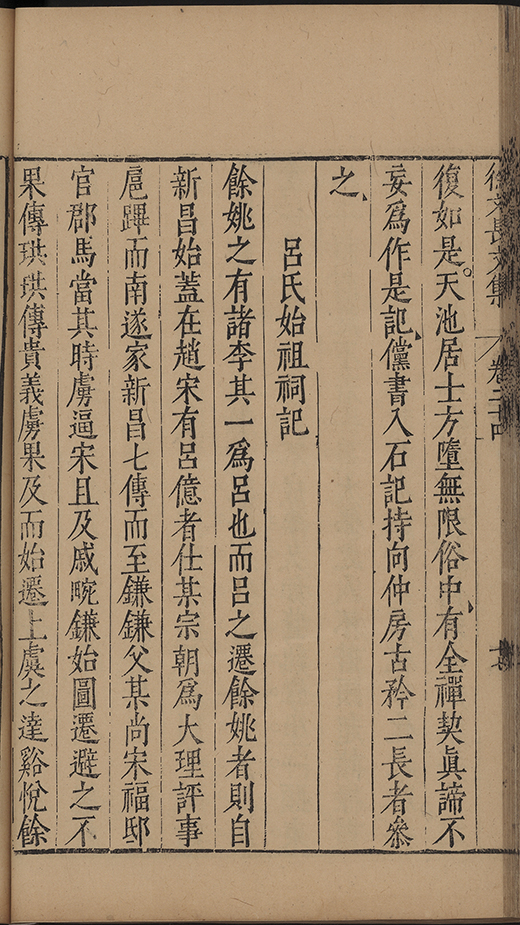 徐文長文集 卷二十四 七
復如是天池居士方墮無限俗中有全禪契眞諦不
妄爲作是記儻書入石記持向仲房古矜二長者叅
之
呂氏始祖祠記
餘姚之有諸李其一爲呂也而呂之遷餘姚者則自
新昌始蓋在趙宋有呂億者仕某宗朝爲大理評事
扈蹕而南遂家新昌七傳而至鎌鎌父某尚宋福邸
官郡馬當其時虜逼宋且及戚畹鎌始圖遷避之不
果傳珙珙傳貴義虜果及而始遷上虞之達谿悅餘